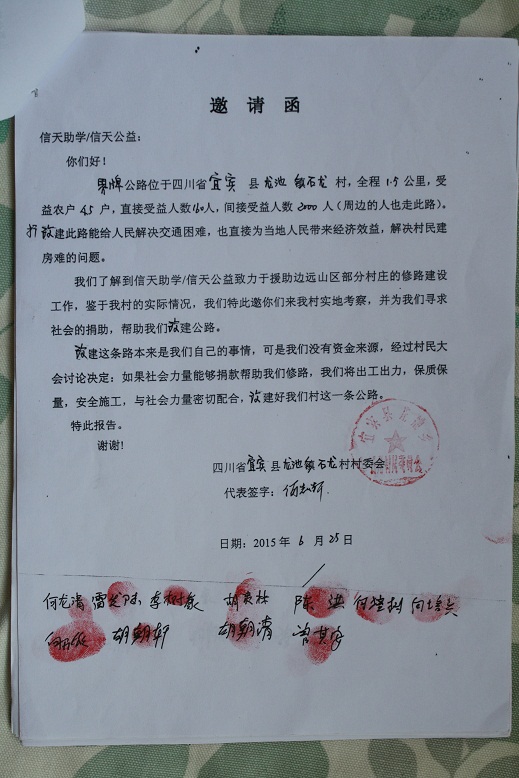 邀 请 函
信天助学/信天公益：
你们好！
界牌公路位于四川省宜宾县龙池乡石龙村，全程1.5公里，受
益农户45户，直接受益人数160人，间接受益人数2000人（周边的人也走此路）。
改建此路能给人民解决交通困难，也直接为当地人民带来经济效益，解决村民建
房难的问题。
我们了解到信天助学/信天公益致力于援助边远山区部分村庄的修路建设
工作，鉴于我村的实际情况，我们特此邀你们来我村实地考察，并为我们寻求
社会的捐助，帮助我们改建公路。
改建这条路本来是我们自己的事情，可是我们没有资金来源，经过村民大
会讨论决定：如果社会力量能够捐款帮助我们修路，我们将出工出力，保质保
量，安全施工，与社会力量密切配合，改建好我们村这一条公路。
特此报告。
谢谢！
四川省宜宾县龙池乡石龙村村委会
代表签字：
日期：2015年6月25日
何龙清 陈洪
胡朝轩 胡朝清